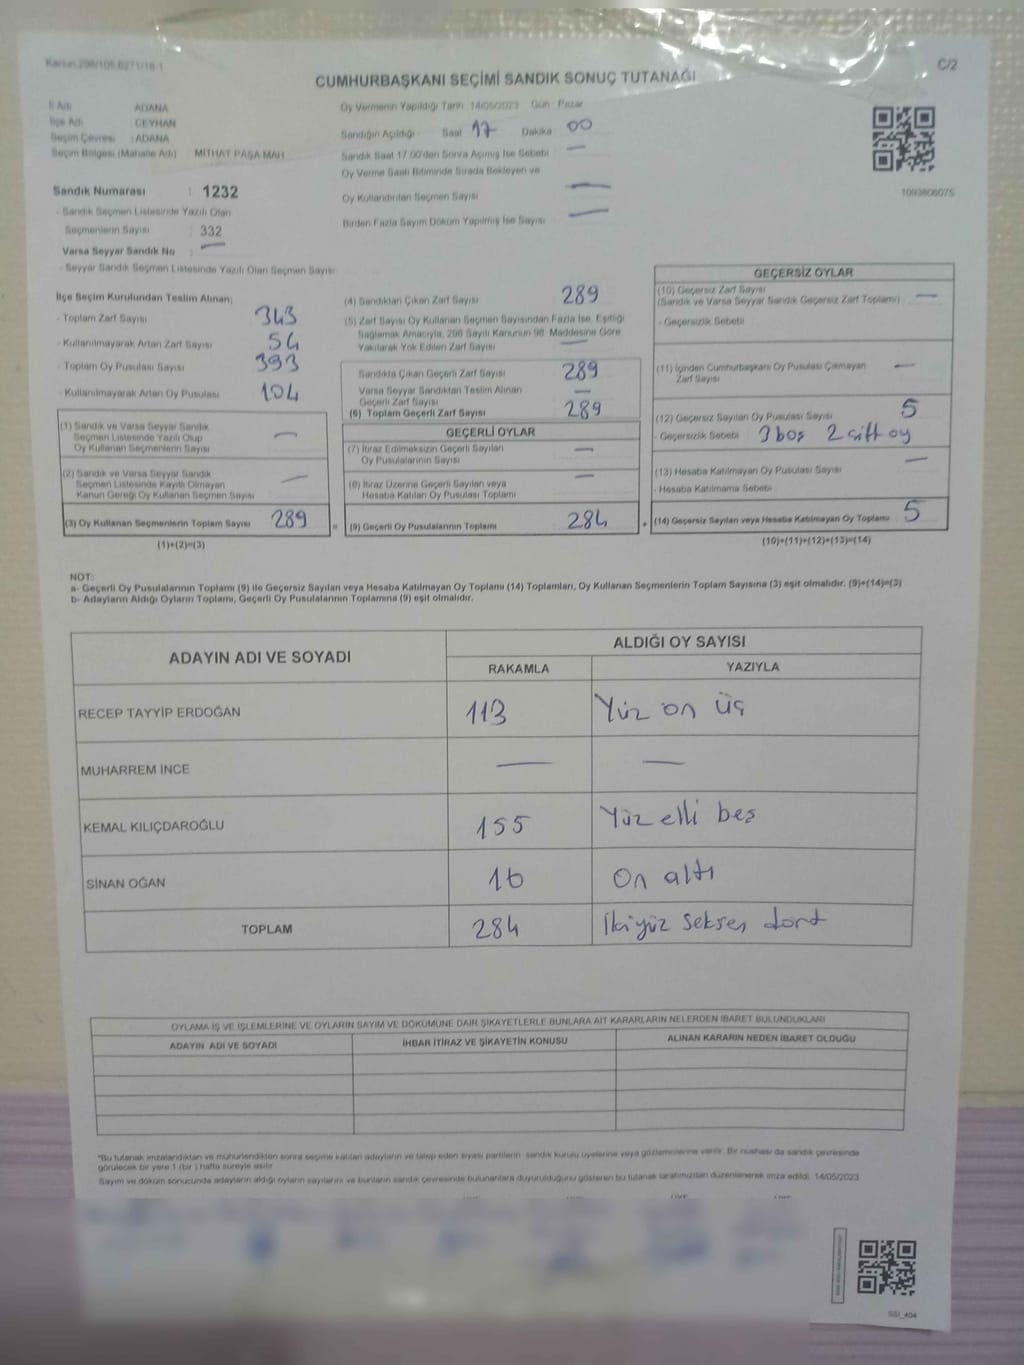 Kanun 298/105 B271/18-1
C/2
CUMHURBAŞKANI SEÇİMİ SANDIK SONUÇ TUTANAĞI
İl Adı ADANA
İlçe Adı CEYHAN
Seçim Çevresi : ADANA
Seçim Bölgesi (Mahalle Adı) MİTHAT PAŞA MAH
Oy Vermenin Yapıldığı Tarih 14/05/2023 Gün Pazar
Sandığın Açıldığı Saat 17 Dakika 00
Sandık Saat 17.00'den Sonra Açımış İse Sebebi —
Oy Verme Saati Bitiminde Sırada Bekleyen ve
Oy Kullandırılan Seçmen Sayısı —
Birden Fazla Sayım Döküm Yapılmış İse Sayısı —
1093806075
Sandık Numarası : 1232
- Sandık Seçmen Listesinde Yazılı Olan
Seçmenlerin Sayısı : 332
Varsa Seyyar Sandık No : —
- Seyyar Sandık Seçmen Listesinde Yazılı Olan Seçmen Sayısı
İlçe Seçim Kurulundan Teslim Alınan;
- Toplam Zarf Sayısı 343
- Kullanılmayarak Artan Zarf Sayısı 54
- Toplam Oy Pusulası Sayısı 393
- Kullanılmayarak Artan Oy Pusulası 104
(1) Sandık ve Varsa Seyyar Sandık
Seçmen Listesinde Yazılı Olup
Oy Kullanan Seçmenlerin Sayısı —
(2) Sandık ve Varsa Seyyar Sandık
Seçmen Listesinde Kayıtlı Olmayan
Kanun Gereği Oy Kullanan Seçmen Sayısı —
(3) Oy Kullanan Seçmenlerin Toplam Sayısı 289
(1)+(2)=(3)
(4) Sandıktan Çıkan Zarf Sayısı 289
(5) Zarf Sayısı Oy Kullanan Seçmen Sayısından Fazla İse, Eşitliği
Sağlamak Amacıyla, 298 Sayılı Kanunun 98. Maddesine Göre
Yakılarak Yok Edilen Zarf Sayısı —
Sandıkta Çıkan Geçerli Zarf Sayısı 289
Varsa Seyyar Sandıktan Teslim Alınan
Geçerli Zarf Sayısı —
(6) Toplam Geçerli Zarf Sayısı 289
GEÇERLİ OYLAR
(7) İtiraz Edilmeksizin Geçerli Sayılan
Oy Pusulalarının Sayısı —
(8) İtiraz Üzerine Geçerli Sayılan veya
Hesaba Katılan Oy Pusulası Toplamı —
= (9) Geçerli Oy Pusulalarının Toplamı 284
GEÇERSİZ OYLAR
(10) Geçersiz Zarf Sayısı
(Sandık ve Varsa Seyyar Sandık Geçersiz Zarf Toplamı) —
- Geçersizlik Sebebi
(11) İçinden Cumhurbaşkanı Oy Pusulası Çıkmayan
Zarf Sayısı —
(12) Geçersiz Sayılan Oy Pusulası Sayısı 5
- Geçersizlik Sebebi 3 boş 2 çift oy
(13) Hesaba Katılmayan Oy Pusulası Sayısı —
- Hesaba Katılmama Sebebi
+ (14) Geçersiz Sayılan veya Hesaba Katılmayan Oy Toplamı 5
(10)+(11)+(12)+(13)=(14)
NOT:
a- Geçerli Oy Pusulalarının Toplamı (9) ile Geçersiz Sayılan veya Hesaba Katılmayan Oy Toplamı (14) Toplamları, Oy Kullanan Seçmenlerin Toplam Sayısına (3) eşit olmalıdır. (9)+(14)=(3)
b- Adayların Aldığı Oyların Toplamı, Geçerli Oy Pusulalarının Toplamına (9) eşit olmalıdır.
ADAYIN ADI VE SOYADI ALDIĞI OY SAYISI
RAKAMLA YAZIYLA
RECEP TAYYİP ERDOĞAN 113 Yüz on üç
MUHARREM İNCE — —
KEMAL KILIÇDAROĞLU 155 Yüz elli beş
SİNAN OĞAN 16 On altı
TOPLAM 284 İkiyüz seksen dört
OYLAMA İŞ VE İŞLEMLERİNE VE OYLARIN SAYIM VE DÖKÜMÜNE DAİR ŞİKAYETLERLE BUNLARA AİT KARARLARIN NELERDEN İBARET BULUNDUKLARI
ADAYIN ADI VE SOYADI İHBAR İTİRAZ VE ŞİKAYETİN KONUSU ALINAN KARARIN NEDEN İBARET OLDUĞU
*Bu tutanak imzalandıktan ve mühürlendikten sonra seçime katılan adayların ve talep eden siyasi partilerin sandık kurulu üyelerine veya gözlemcilerine verilir. Bir nüshası da sandık çevresinde
görülecek bir yere 1 (bir) hafta süreyle asılır.
Sayım ve döküm sonucunda adayların aldığı oyların sayılarını ve bunların sandık çevresinde bulunanlara duyurulduğunu gösteren bu tutanak tarafımızdan düzenlenerek imza edildi. 14/05/2023